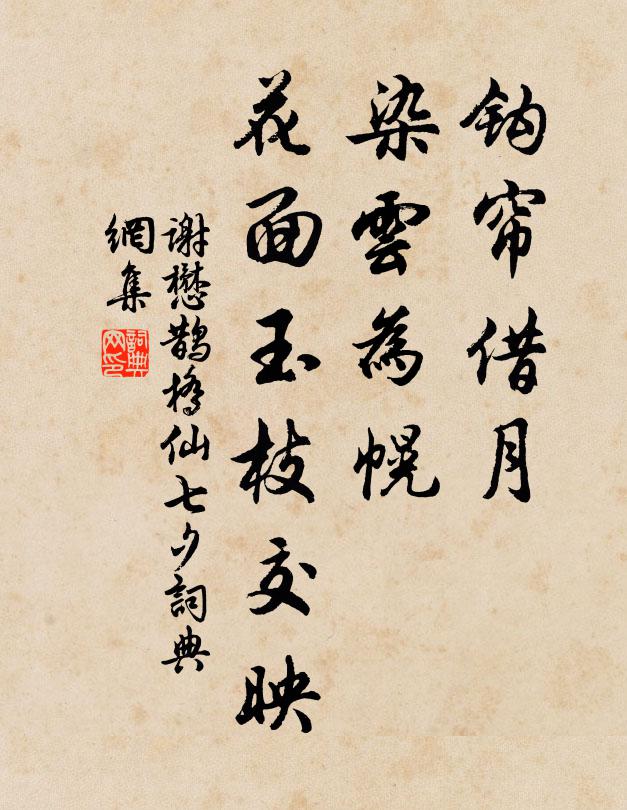 鈎帘借月
染雲為幌
花面玉枝交映
謝懋鵲橋仙七夕詞典
網集
詞典
网印